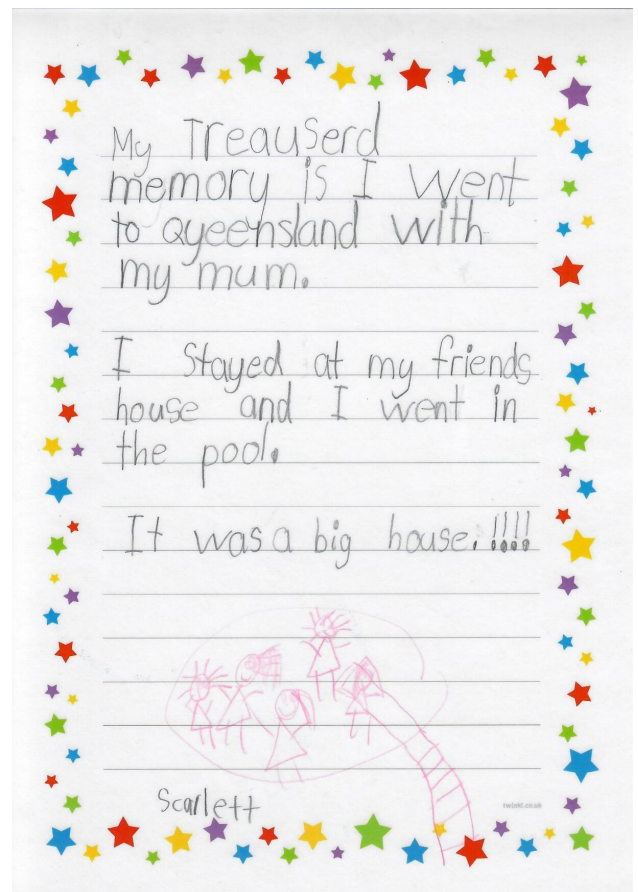 My Treauserd
memory is I went
to Qyeensland with
my mum.
I Stayed at my friends
house and I went in
the pool.
It was a big house.!!!!
Scarlett
twinkl.co.uk